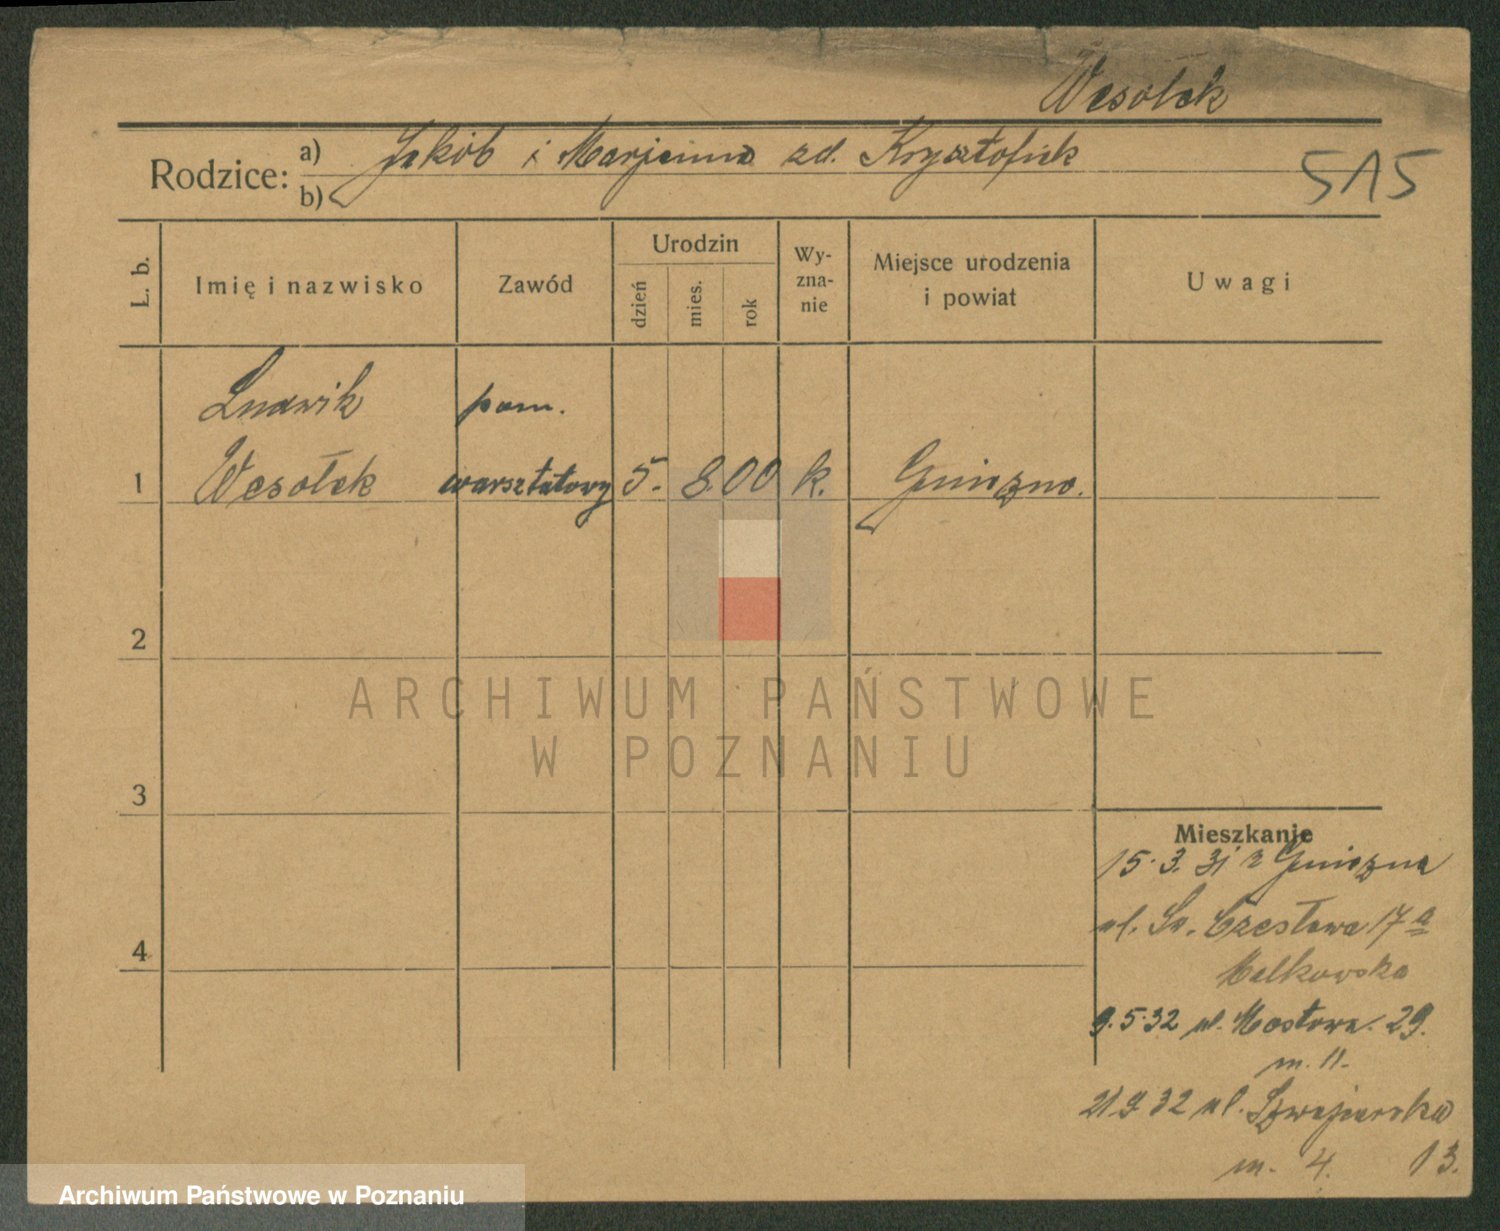 Wesołek
Rodzice: a) Jakób i Marjanna zd. Krysztofiak
b)
515
L. b.
Imię i nazwisko
Zawód
Urodzin
dzień
mies.
rok
Wy-
zna-
nie
Miejsce urodzenia
i powiat
Uwagi
Ludwik pom.
1 Wesołek warsztatowy 5. 8. 00 k. Gniezno.
2
ARCHIWUM PAŃSTWOWE
W POZNANIU
3
Mieszkanie
15.3.31 z Gniezna
ul. Św. Czesława 17 a
4
Malkowska
9.5.32 ul. Mostowa 29.
m. 11.
21.9.32 ul. Szwajcarska
m. 4. 13.
Archiwum Państwowe w Poznaniu